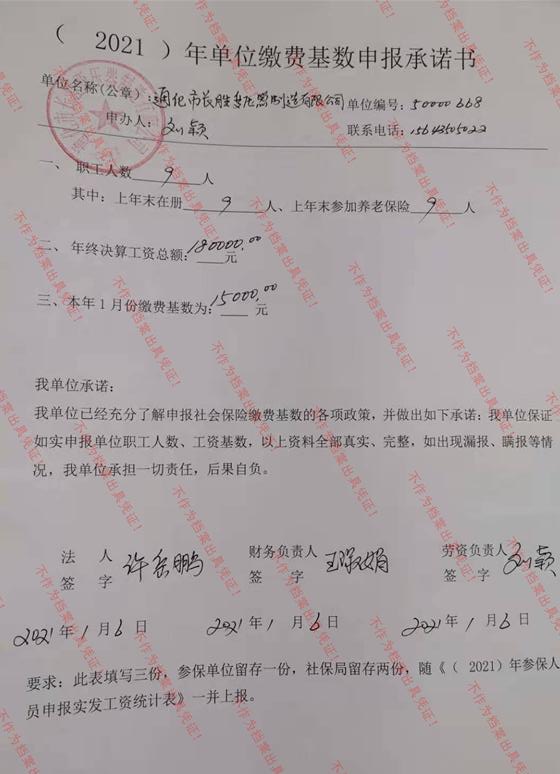 （ 2021 ）年单位缴费基数申报承诺书
单位名称(公章）:通化市长胜 制造有限公司 单位编号: 50000668
申办人: 刘颖 联系电话: 15643505022
一、 职工人数 9 人
其中: 上年末在册 9 人、上年末参加养老保险 9 人
二、年终决算工资总额: 180000.00 元
三、本年1月份缴费基数为: 15000.00 元
我单位承诺:
我单位已经充分了解申报社会保险缴费基数的各项政策, 并做出如下承诺: 我单位保证
如实申报单位职工人数、工资基数, 以上资料全部真实、完整, 如出现漏报、瞒报等情
况, 我单位承担一切责任, 后果自负。
法 人 许岳鹏 财务负责人 王淑娟 劳资负责人 刘颖
签 字 签 字 签 字
2021年1月6日 2021年1月6日 2021年1月6日
要求: 此表填写三份, 参保单位留存一份, 社保局留存两份, 随《（ 2021）年参保人
员申报实发工资统计表》一并上报。
不作为档案出具凭证!